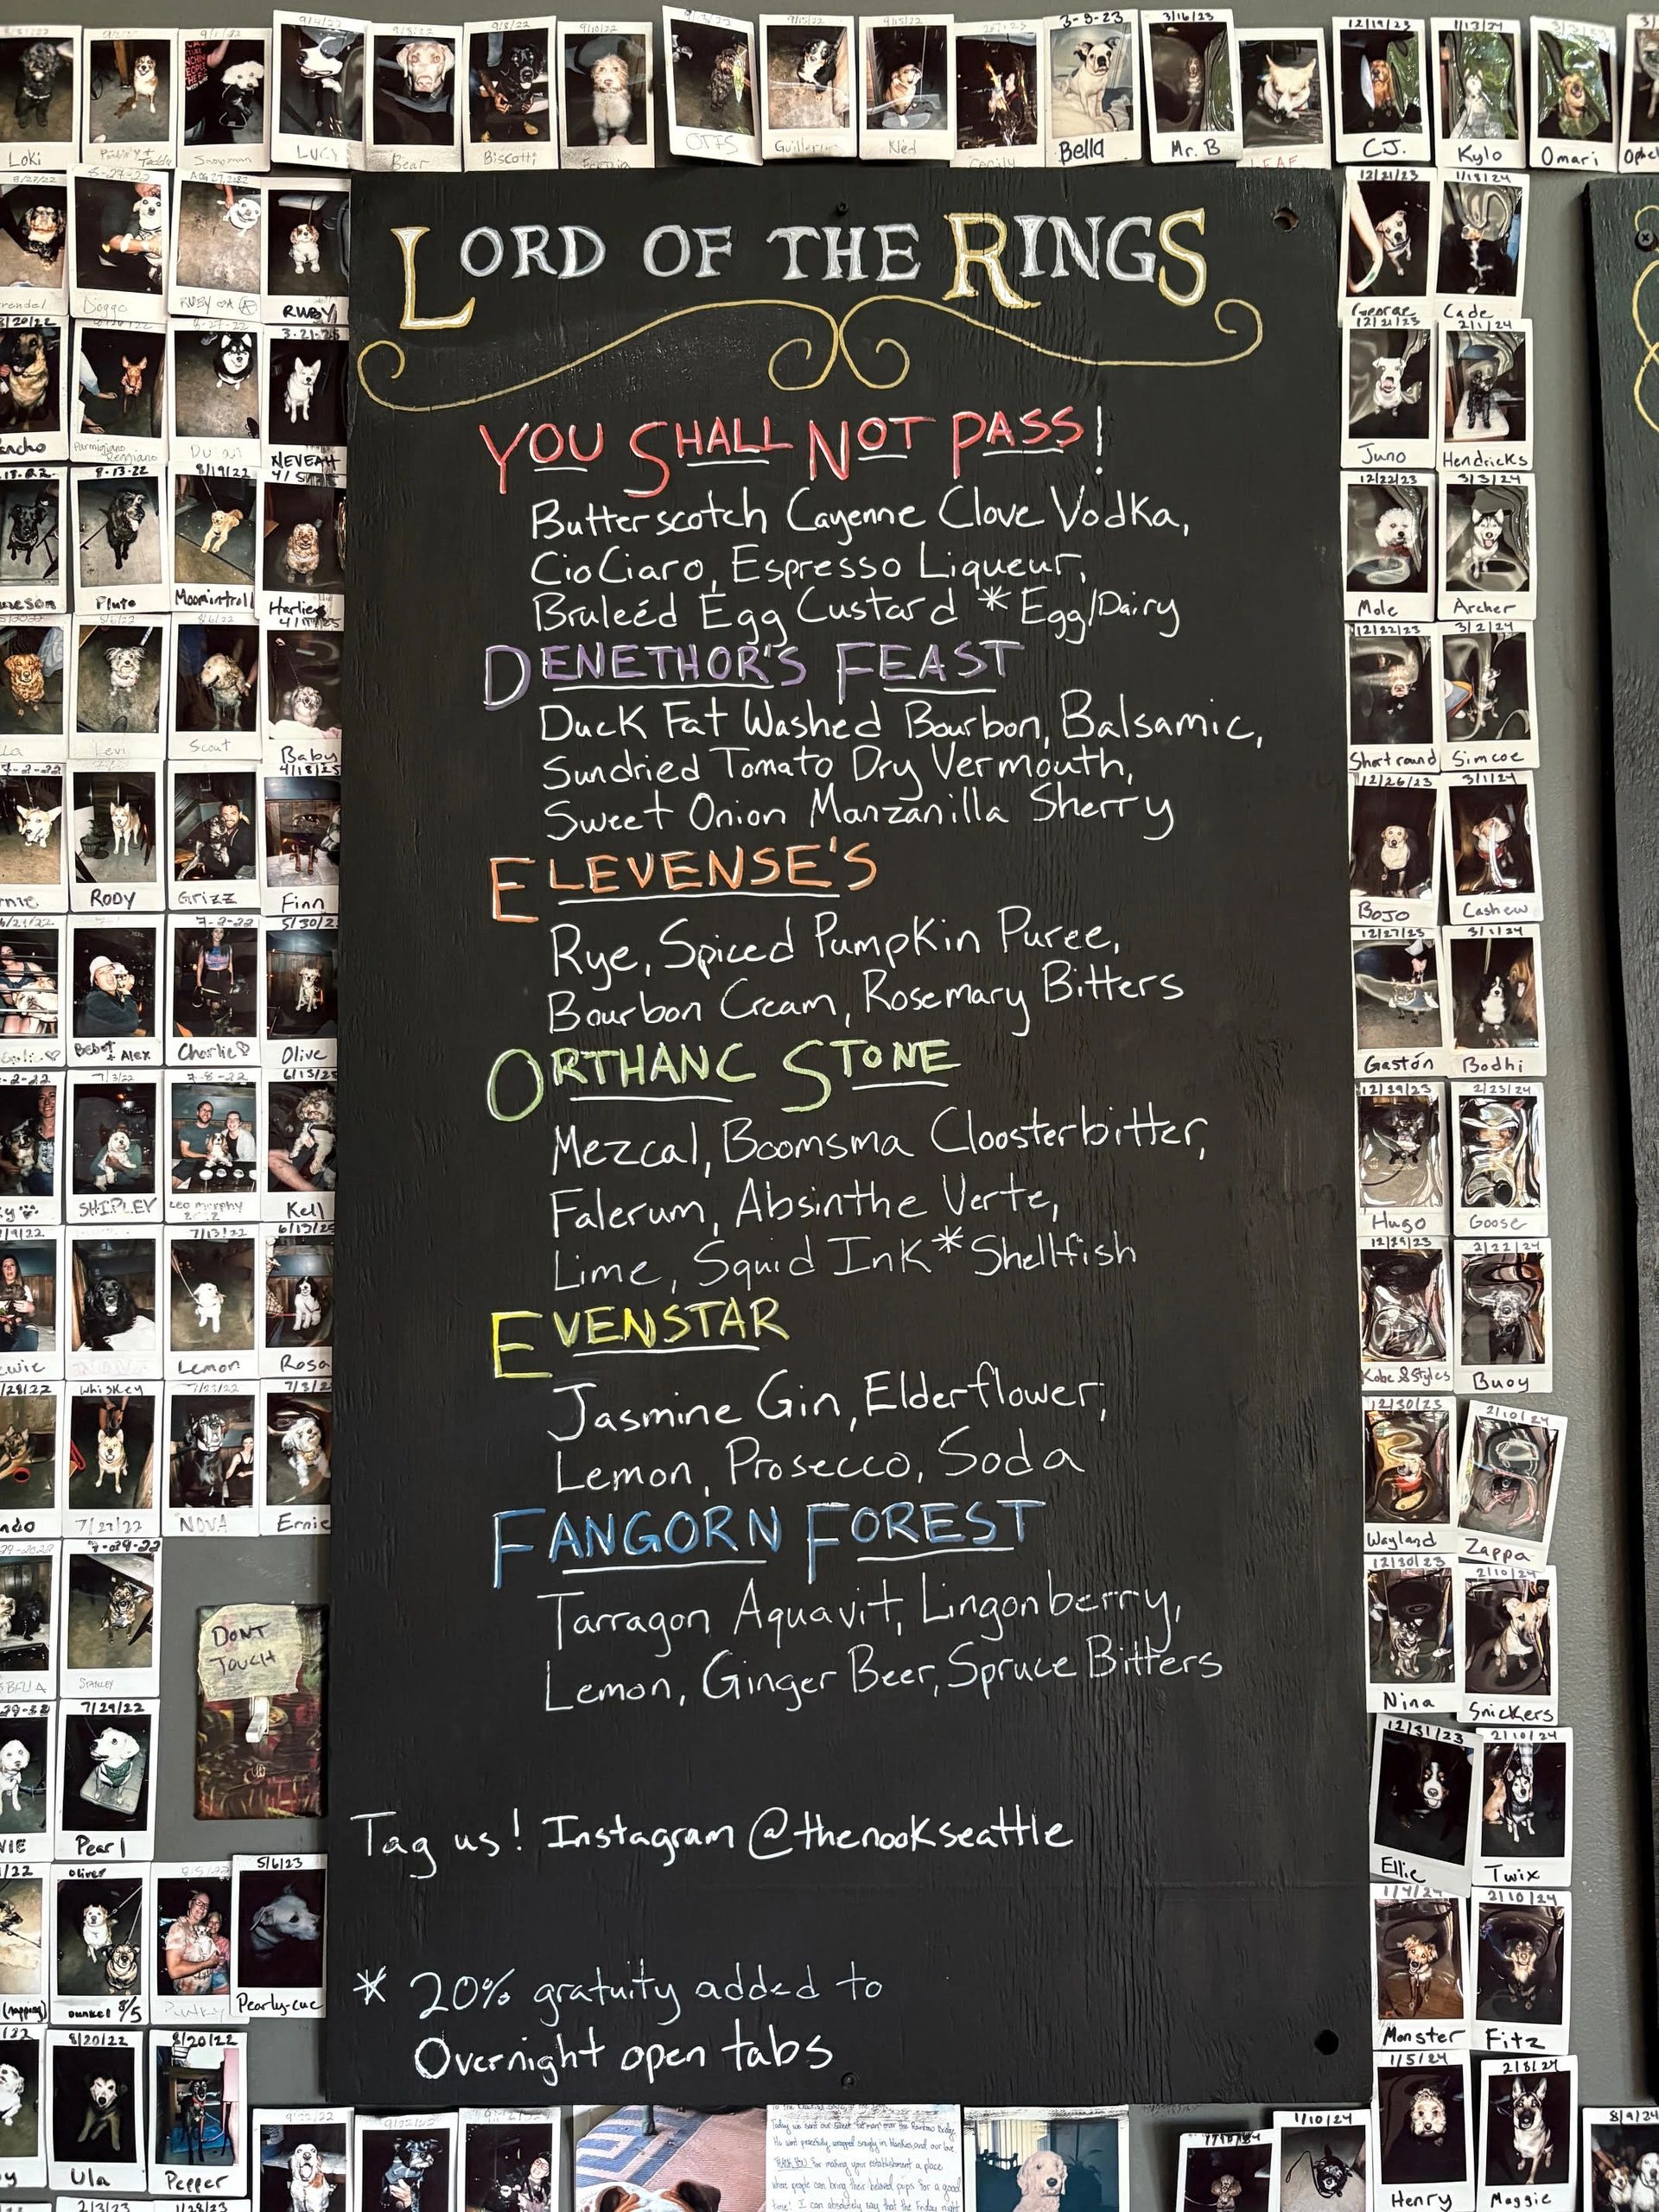 LORD OF THE RINGS
YOU SHALL NOT PASS!
Butterscotch Cayenne Clove Vodka,
CioCiaro, Espresso Liqueur,
Bruleéd Egg Custard *Egg/Dairy
DENETHOR'S FEAST
Duck Fat Washed Bourbon, Balsamic,
Sundried Tomato Dry Vermouth,
Sweet Onion Manzanilla Sherry
ELEVENSE'S
Rye, Spiced Pumpkin Puree,
Bourbon Cream, Rosemary Bitters
ORTHANC STONE
Mezcal, Boomsma Cloosterbitter,
Falerum, Absinthe Verte,
Lime, Squid Ink *Shellfish
EVENSTAR
Jasmine Gin, Elderflower,
Lemon, Prosecco, Soda
FANGORN FOREST
Tarragon Aquavit, Lingonberry,
Lemon, Ginger Beer, Spruce Bitters
Tag us! Instagram @thenookseattle
* 20% gratuity added to
Overnight open tabs
DONT
TOUCH
Loki
Snowman
LUCY
Bear
Biscotti
OTIS
Kled
3-5-23
Bella
3/16/23
Mr. B
12/19/23
C.J.
1/13/24
Kylo
Omari
Doggo
RUBY
3.21.25
NEVEAH
8-13-22
Pluto
8/19/22
Moomintroll
Harlie
Levi
Scout
Baby
4/18/25
RODY
GRIZZ
Finn
7-2-22
Charlie
Bebot + Alex
Olive
7/3/22
SHIPLEY
7-8-22
6/13/25
Kell
7/13/22
Lemon
Rosa
Whiskey
7/27/22
NOVA
Ernie
7-29-22
STANLEY
7/29/22
Pearl
Oliver
5/6/23
Pearly-cue
8/20/22
Ula
8/20/22
Pepper
12/21/23
George
1/18/24
Cade
12/21/23
Juno
2/1/24
Hendricks
12/22/23
Mole
3/3/24
Archer
12/22/23
Shortround
3/2/24
Simcoe
12/26/23
BoJo
3/1/24
Cashew
12/27/23
Gastón
3/1/24
Bodhi
12/29/23
Hugo
2/23/24
Goose
12/29/23
Kobe & Styles
2/22/24
Buoy
12/30/23
Wayland
2/10/24
Zappa
12/30/23
Nina
2/10/24
Snickers
12/31/23
Ellie
2/10/24
Twix
1/4/24
Monster
2/10/24
Fitz
1/5/24
Henry
2/8/24
Maggie
1/10/24
8/9/24